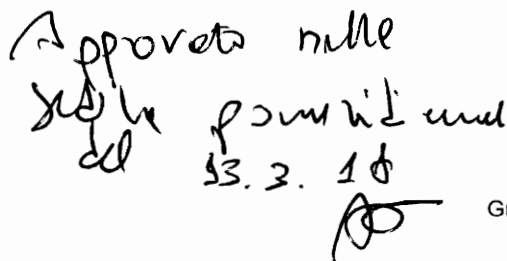 Approvato nelle
sedute pomeridiane
del 13. 3. 18
Gr